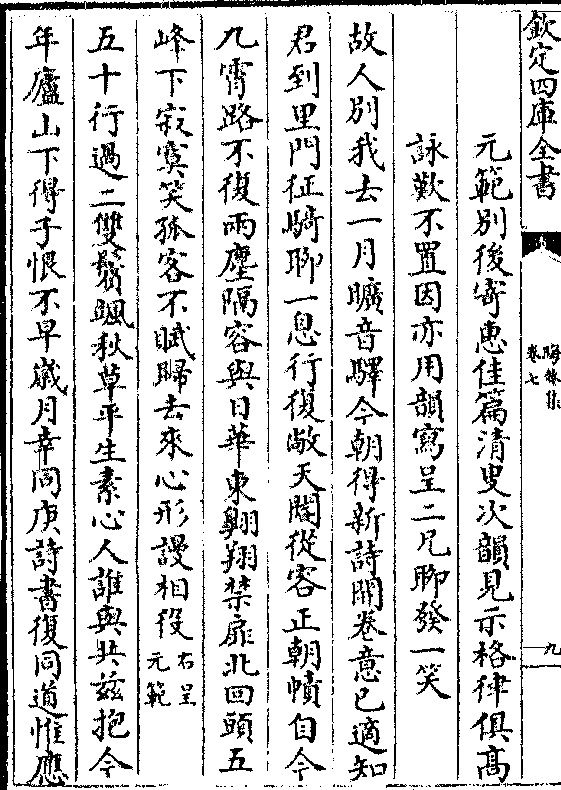 欽定四庫全書
晦菴集
卷七
九
元範別後寄惠佳篇清叟次韻見示格律俱髙
詠歎不置因亦用韻寫呈二兄聊發一笑
故人別我去一月曠音驛今朝得新詩開卷意已適知
君到里門征騎聊一息行復敞天閽從容正朝幘自今
九霄路不復兩塵隔容與日華東翺翔禁扉北回頭五
峰下寂寞笑孤客不賦歸去來心形謾相役右呈元範
五十行過二雙鬢颯秋草平生素心人誰與共兹抱今
年廬山下得子恨不早歲月幸同庚詩書復同道惟應